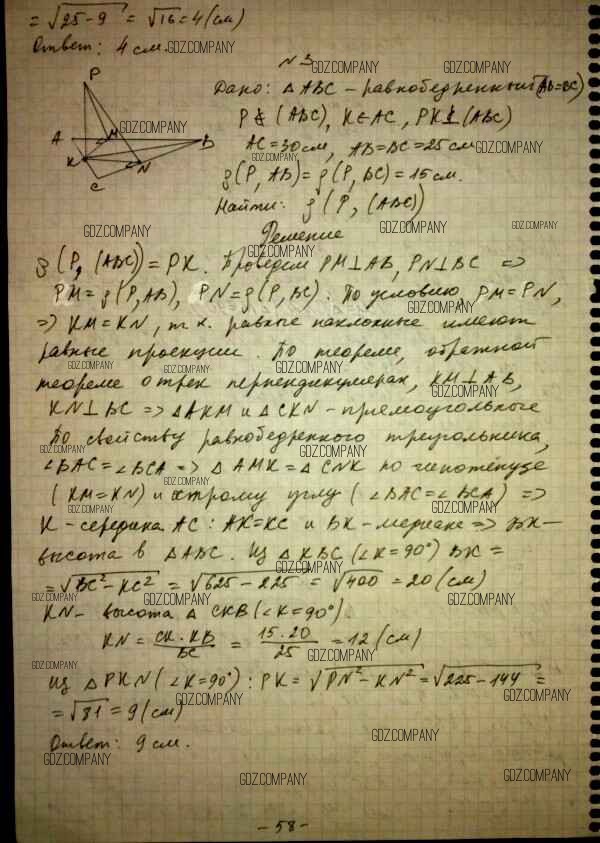 = √25-9 = √16 = 4 (см)
Ответ: 4 см.
N 3
Дано: △ABC - равнобедренный (AB=BC)
P ∉ (ABC), K ∈ AC, PK ⊥ (ABC)
AC = 30 см, AB = BC = 25 см
ρ(P, AB) = ρ(P, BC) = 15 см.
Найти: ρ(P, (ABC))
P
A
M
B
K
N
C
Решение
ρ(P, (ABC)) = PK. Проведем PM⊥AB, PN⊥BC =>
PM = ρ(P, AB), PN = ρ(P, BC). По условию, PM = PN,
=> KM = KN, т.к. равные наклонные имеют
равные проекции. По теореме, обратной
теореме о трех перпендикулярах, KM⊥AB,
KN⊥BC => △AKM и △CKN - прямоугольные
По свойству равнобедренного треугольника,
∠BAC = ∠BCA => △AMK = △CNK по гипотенузе
(KM=KN) и острому углу (∠BAC = ∠BCA) =>
K - середина AC: AK=KC и BK - медиана => BK -
высота в △ABC. Из △KBC (∠K=90°) BK =
= √BC²-KC² = √625-225 = √400 = 20 (см)
KN - высота △CKB (∠K=90°)
KN = CK·KB / BC = 15·20 / 25 = 12 (см)
Из △PKN (∠K=90°): PK = √PN²-KN² = √225-144 =
= √81 = 9 (см)
Ответ: 9 см.
- 58 -
GDZ.COMPANY